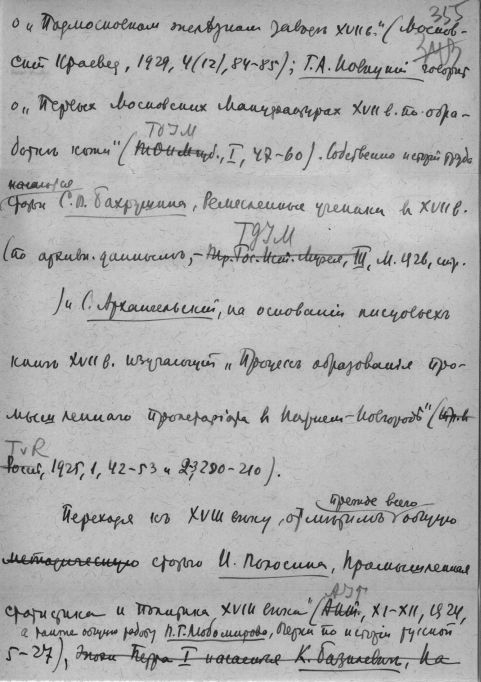 355
о „Подмосковном железном заводѣ XVII в.“ (Москов-
ский Краевед, 1929, 4(12), 84-85); Г.А. Новицкий говорит
о „Первых Московских Мануфактурах XVII в. по обра-
ботке кожи“ (
ТГИМ
, I, 47-60). Собственно истории труда
касаются
статьи С.В. Бахрушина, Ремесленные ученики в XVII в.
ТГИМ
(по архивн. данным, – Тр. Гос. Ист. Музея, III, М. 1926, стр.
) и С. Архангельский, на основании писцовых
книг XVII в. изучающий „Процесс образования про-
мышленнаго пролетариата в Нижнем-Новгородѣ“ (
TvR
1925, 1, 42-53 и 2/3, 210).
прежде всего
Переходя къ XVIII вѣку, отмѣтимъ общую
методическую статью И. Полосина, Промышленная
статистика и политика XVIII вѣка (
XI-XII, 1924,
а также общую работу П.Г. Любомирова, Очерки по истории русской
5-27), Эпохи Петра I касается К. Базилевич, На